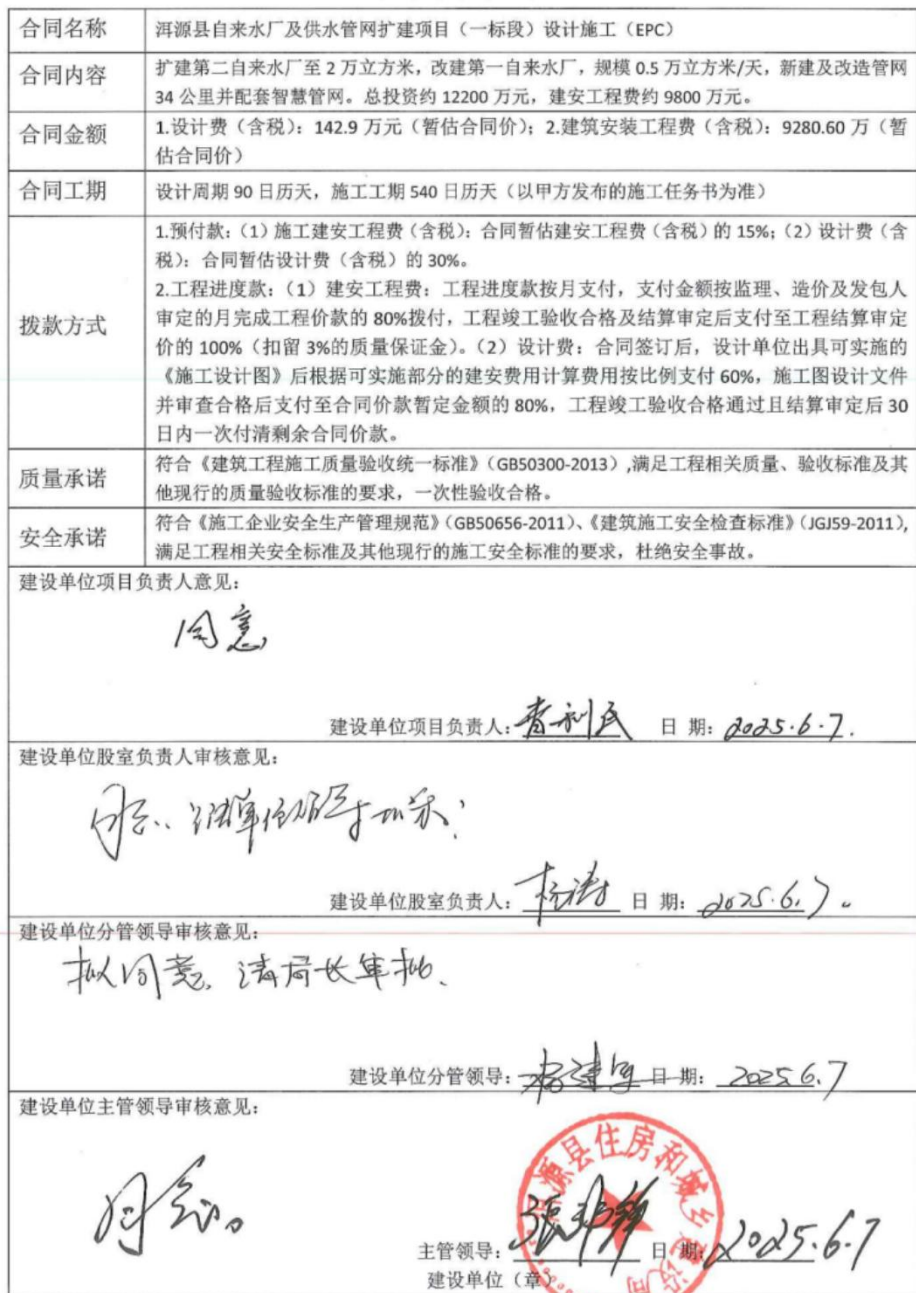 合同名称
洱源县自来水厂及供水管网扩建项目（一标段）设计施工（EPC）
合同内容
扩建第二自来水厂至 2 万立方米，改建第一自来水厂，规模 0.5 万立方米/天，新建及改造管网
34 公里并配套智慧管网。总投资约 12200 万元，建安工程费约 9800 万元。
合同金额
1.设计费（含税）：142.9 万元（暂估合同价）；2.建筑安装工程费（含税）：9280.60 万（暂
估合同价）
合同工期
设计周期 90 日历天，施工工期 540 日历天（以甲方发布的施工任务书为准）
拨款方式
1.预付款：（1）施工建安工程费（含税）：合同暂估建安工程费（含税）的 15%；（2）设计费（含
税）：合同暂估设计费（含税）的 30%。
2.工程进度款：（1）建安工程费：工程进度款按月支付，支付金额按监理、造价及发包人
审定的月完成工程价款的 80%拨付，工程竣工验收合格及结算审定后支付至工程结算审定
价的 100%（扣留 3%的质量保证金）。（2）设计费：合同签订后，设计单位出具可实施的
《施工设计图》后根据可实施部分的建安费用计算费用按比例支付 60%，施工图设计文件
并审查合格后支付至合同价款暂定金额的 80%，工程竣工验收合格通过且结算审定后 30
日内一次付清剩余合同价款。
质量承诺
符合《建筑工程施工质量验收统一标准》（GB50300-2013）,满足工程相关质量、验收标准及其
他现行的质量验收标准的要求，一次性验收合格。
安全承诺
符合《施工企业安全生产管理规范》（GB50656-2011）、《建筑施工安全检查标准》（JGJ59-2011），
满足工程相关安全标准及其他现行的施工安全标准的要求，杜绝安全事故。
建设单位项目负责人意见：
同意
建设单位项目负责人： 日 期：2025.6.7.
建设单位股室负责人审核意见：
建设单位股室负责人：杨涛 日 期：2025.6.7。
建设单位分管领导审核意见：
拟同意，请局长审批、
建设单位分管领导： 日 期：2025.6.7
建设单位主管领导审核意见：
同意。
洱源县住房和城乡建设局
主管领导： 日 期：2025.6.7
建设单位（章）